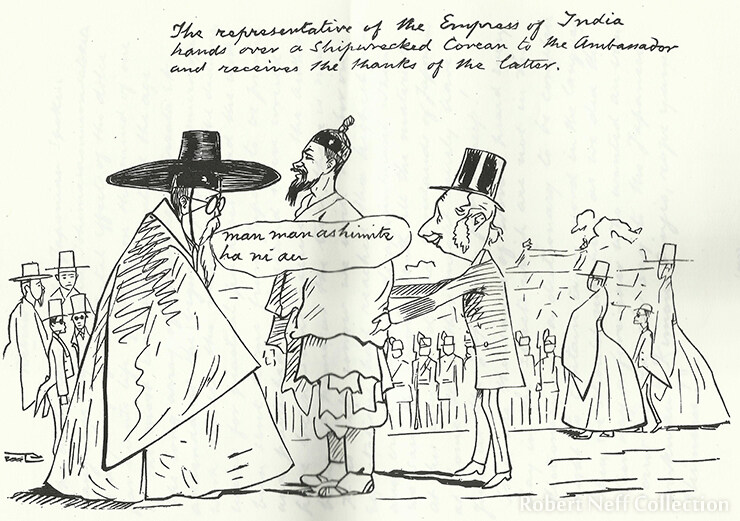 The representative of the Empress of India
hands over a Shipwrecked Corean to the Ambassador
and receives the thanks of the latter.
man man ashimite
ha ni au
Robert Neff Collection